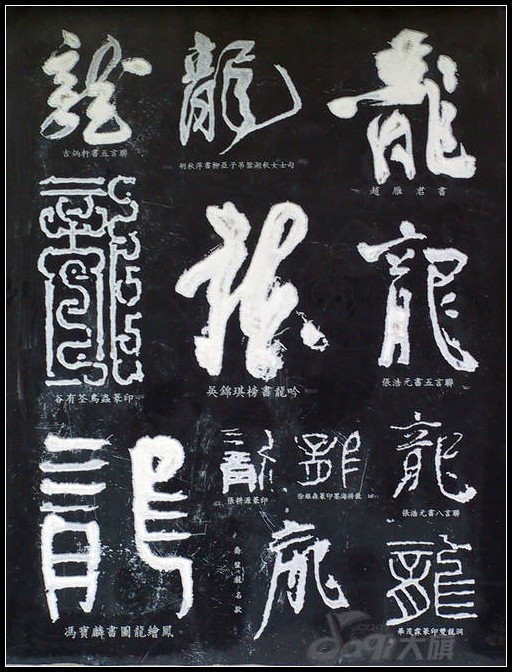 龍
古炳軒書五言聯
龍
胡秋萍書柳亞子吊鑒湖秋女士句
龍
趙雁君書
龍
谷有荃鳥蟲篆印
龍
吳錦琪榜書龍吟
龍
張浩元書五言聯
龍
馮寶麟書圖龍繪鳳
龍
張耕源篆印
龍
徐銀森篆印墨海游龍
龍
張浩元書八言聯
龍
壽璽龍名款
龍
華茂霖篆印雙龍洞